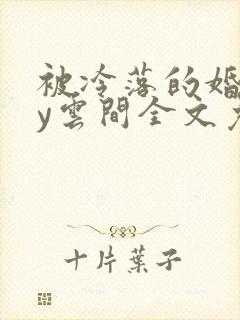 被冷落的婚
y雲間全文
十片葉子